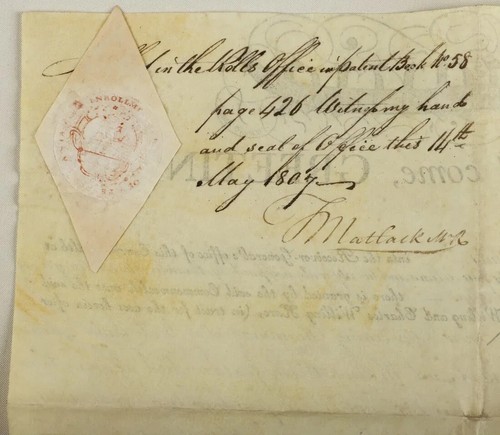 in the Rolls Office in patent Book No 58
page 426 Witness my hand
and seal of Office this 14th
May 1807
TMatlack MR
ENROLLM
come, GREETIN
into the Receiver General's office of this Commonwealth
there is granted by the said Commonwealth unto the said
Willing and Charles Willing Hare, (in trust for the use herein after